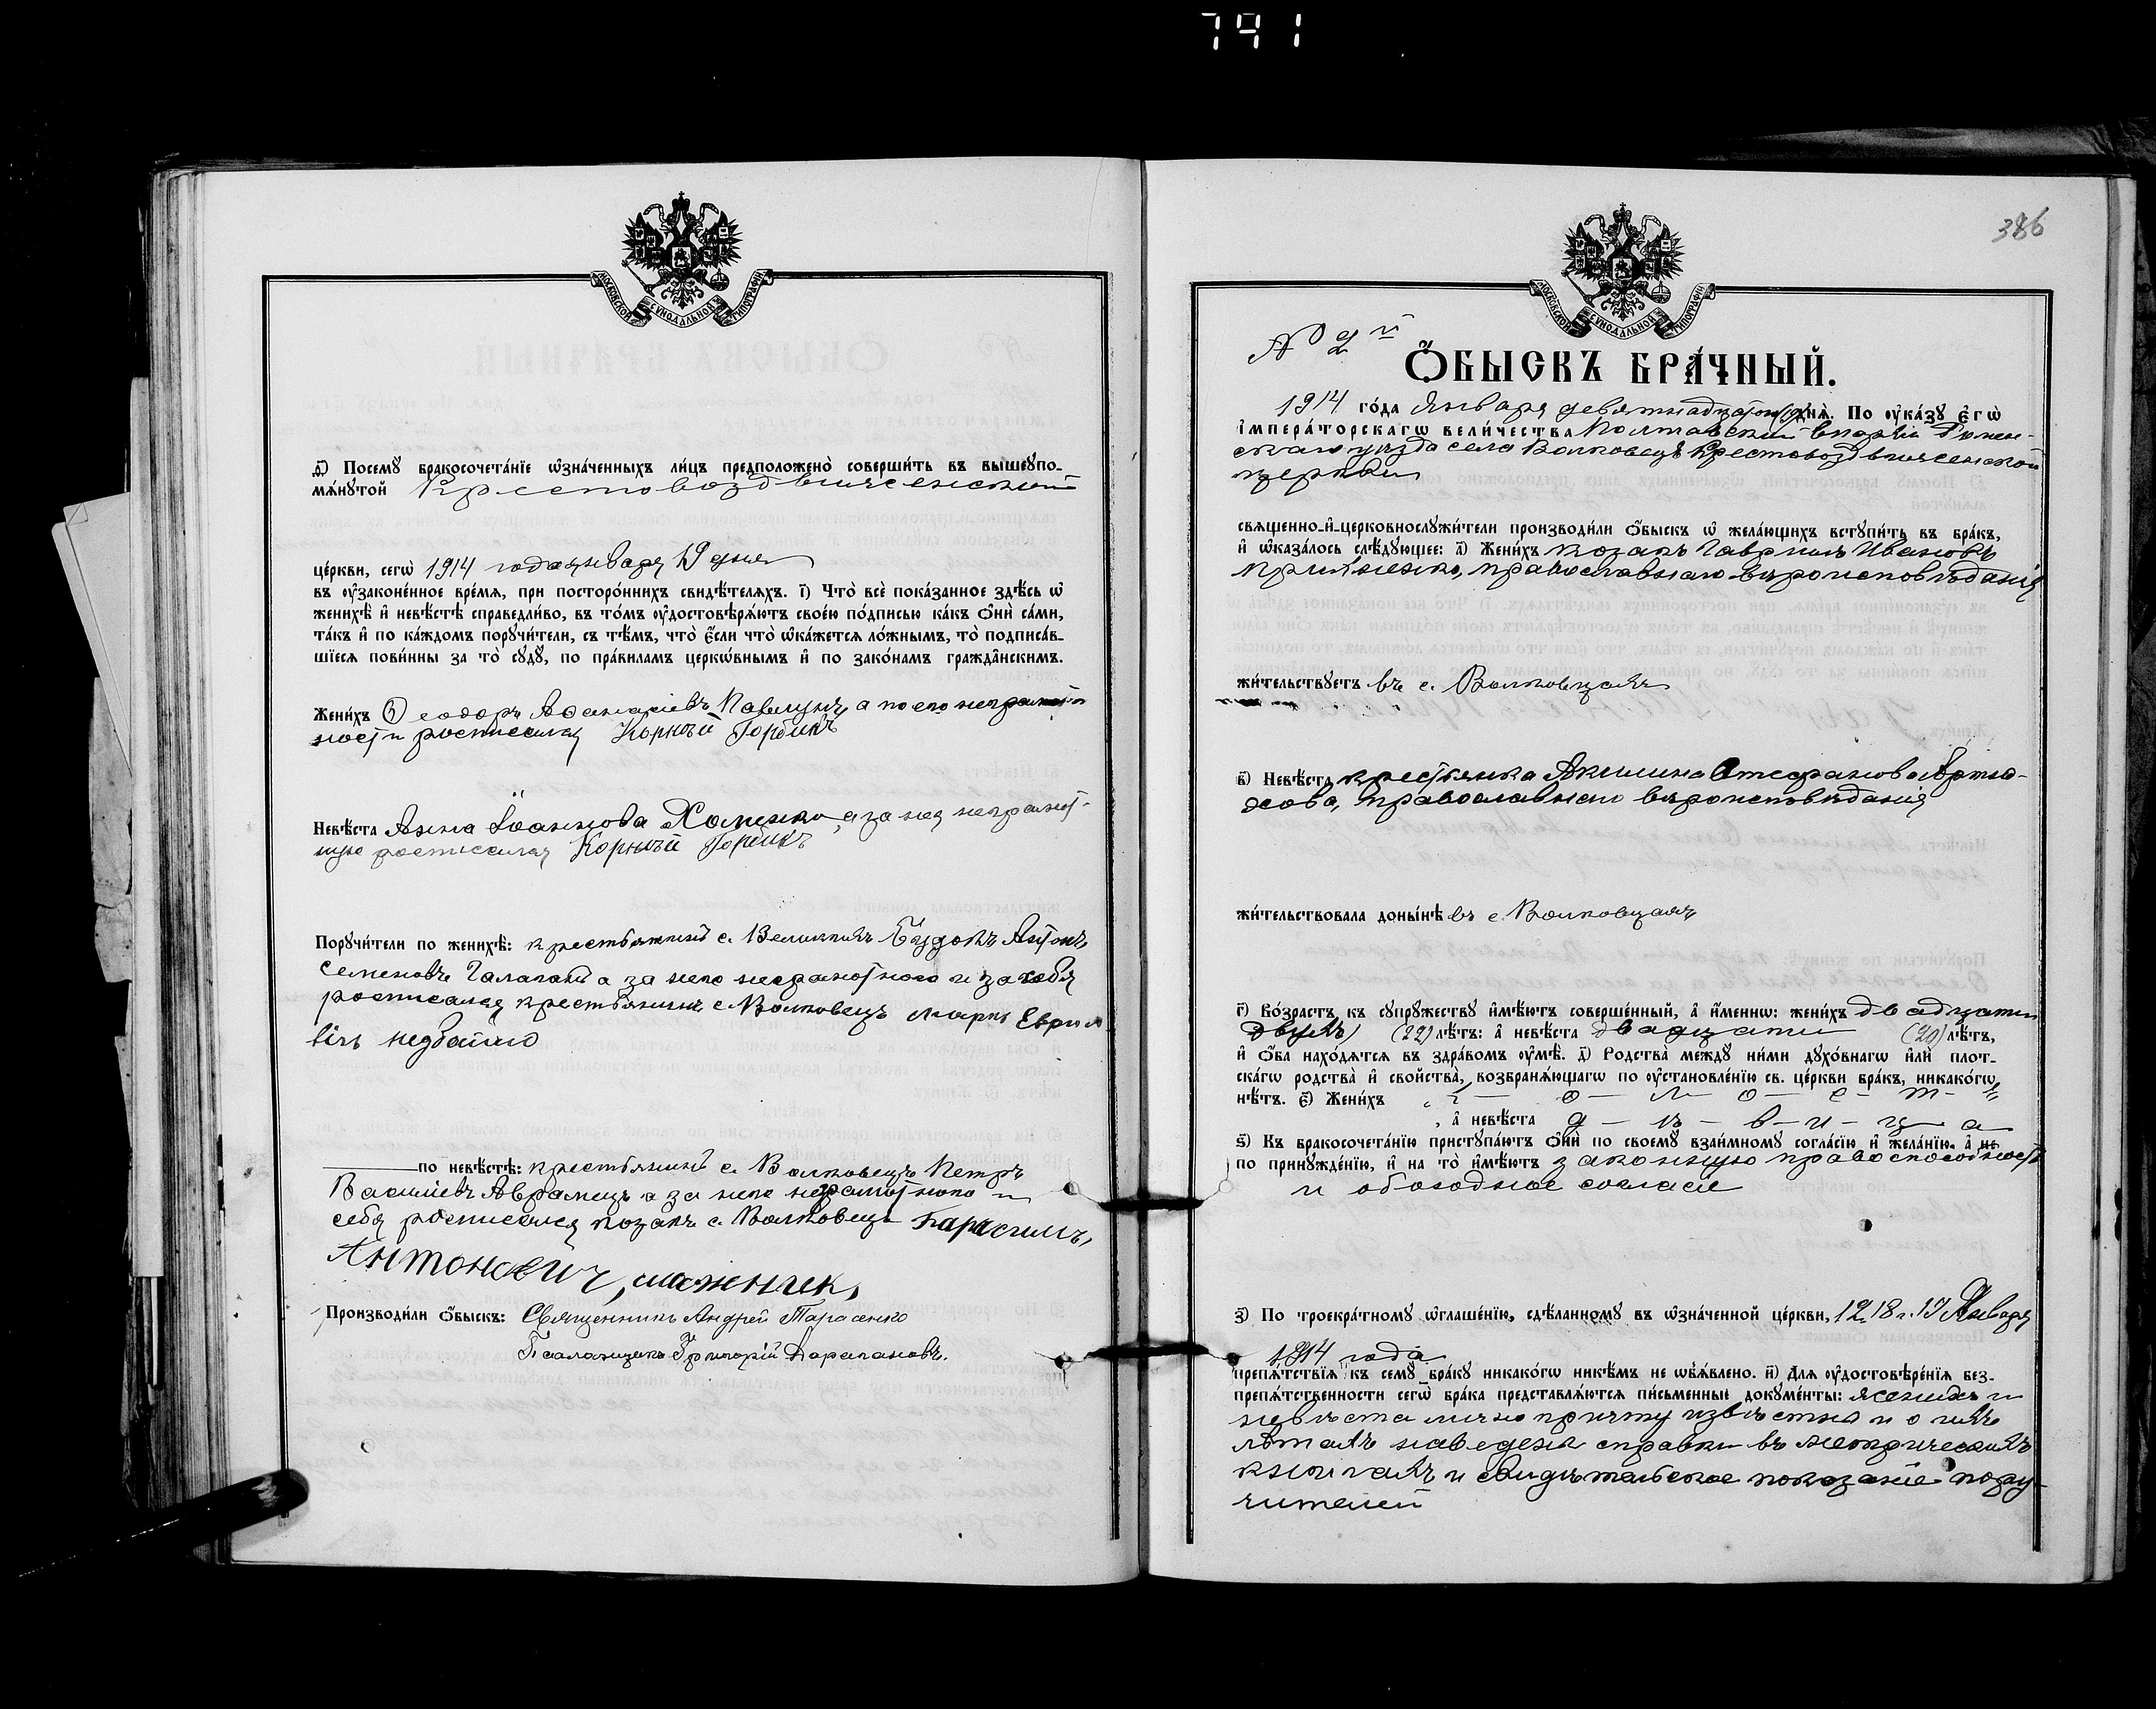 741
МОСКОВСКОЙ СѴНОДАЛЬНОЙ ТИПОГРАФІИ
д҃) Посемꙋ̀ бракосочета́нїе ѡ҆зна́ченныхъ ли́цъ предположено̀ соверши́ть въ вышеꙋпо-
мѧ́нꙋтой Крестовоздвиженской
це́ркви, сегѡ̀ 1914 года января 19 дня
въ ᲂу҆зако́ненное вре́мѧ, при посторо́ннихъ свидѣ́телѧхъ. і҃) Что̀ всѐ пока́занное здѣ́сь ѡ҆
женихѣ̀ и҆ невѣ́стѣ справедли́во, въ то́мъ ᲂу҆достовѣрѧ́ютъ свое́ю по́дписью ка́къ ѻ҆нѝ са́ми,
та́къ и҆ по ка́ждомъ порꙋчи́тели, съ тѣ́мъ, что̀ є҆́сли что̀ ѡ҆ка́жетсѧ ло́жнымъ, то̀ подписа́в-
шїесѧ пови́нны за то̀ сꙋдꙋ̀, по пра́виламъ церкѡ́внымъ и҆ по зако́намъ гражда̑нскимъ.
Жени́хъ Ѳеодоръ Аѳанасіевъ Павлунъ, а по его неграмот-
ности росписался Корнѣй Горбикъ
Невѣ́ста Анна Іоаннова Хоменко, а за нея неграмот-
ную росписался Корнѣй Горбикъ
Порꙋчи́тели по женихѣ̀: крестьянинъ с. Великихъ Будокъ Антонъ
Семеновъ Галаганъ а за него неграмотного и за себя
росписался крестьянинъ с. Волковецъ Маркъ
по невѣ́стѣ: крестьянинъ с. Волковецъ Петръ
Василіевъ Аврамецъ а за него неграмотного и
себя росписался козакъ с. Волковецъ
Антонович,
Производи́ли ѻ҆́быскъ: Священникъ Андрей Тарасенко
Псаломщикъ Григорій
386
МОСКОВСКОЙ СѴНОДАЛЬНОЙ ТИПОГРАФІИ
№ 2й
Ѻ҆́БЫСКЪ БРА́ЧНЫЙ.
1914 го́да Января девятнадцатого (19) днѧ̀. По ᲂу҆ка́зꙋ є҆гѡ̀
і҆мпера́торскагѡ вели́чества Полтавской епархіи Ромен-
скаго уѣзда села Волковецъ Крестовоздвиженской
церкви
свѧще́нно-и҆-церковнослꙋжи́тели производи́ли ѻ҆́быскъ ѡ҆ жела́ющихъ встꙋпи́ть въ бра́къ,
и҆ ѡ҆каза́лось слѣ́дꙋющее: а҃) Жени́хъ козакъ Гавріилъ Ивановъ
православнаго вѣроисповѣданія
жи́тельствꙋетъ въ с. Волковцахъ
в҃) Невѣ́ста крестьянка Акилина Стефанова Артю-
хова, православнаго вѣроисповѣданія
жи́тельствовала доны́нѣ въ с. Волковцахъ
г҃) Во́зрастъ къ сꙋпрꙋ́жествꙋ и҆мѣ́ютъ соверше́нный, а҆ и҆́меннѡ: жени́хъ двадцати
двухъ (22) лѣ́тъ: а҆ невѣ́ста двадцати (20) лѣ́тъ,
и҆ ѻ҆́ба нахо́дѧтсѧ въ здра́вомъ ᲂу҆мѣ̀. д҃) Родства̀ междꙋ̀ ни́ми дꙋхо́внагѡ и҆лѝ плот-
ска́гѡ родства̀ и҆ сво́йства̀, возбранѧ́ющагѡ по ᲂу҆становле́нїю св. це́ркви бра́къ, никако́гѡ
нѣ́тъ. є҃) Жени́хъ х - о - л - о - с - т -
а҆ невѣ́ста д - ѣ - в - и - ц - а
ѕ҃) Къ бракосочета́нїю пристꙋпа́ютъ ѻ҆нѝ по своемꙋ̀ взаи́мномꙋ согла́сїю и҆ жела́нїю, а҆ не
по принꙋжде́нїю, и҆ на то̀ и҆мѣ́ютъ законную правоспособность
и обоюдное согласіе
з҃) По троекра́тномꙋ ѡ҆глаше́нїю, сдѣ́ланномꙋ въ ѡ҆зна́ченной це́ркви, Января
1914 года
препѧ́тствїѧ къ семꙋ̀ бра́кꙋ никако́гѡ никѣ́мъ не ѡ҆б̾ѧ́влено. и҃) Длѧ ᲂу҆достовѣре́нїѧ без-
препѧ́тственности сегѡ̀ бра́ка представлѧ́ютсѧ пи́сьменные докꙋме́нты: женихъ и
невѣста лично причту извѣстны и о ихъ
лѣтахъ наведены справки въ метрическихъ
книгахъ и свидѣтельское показаніе поручителей